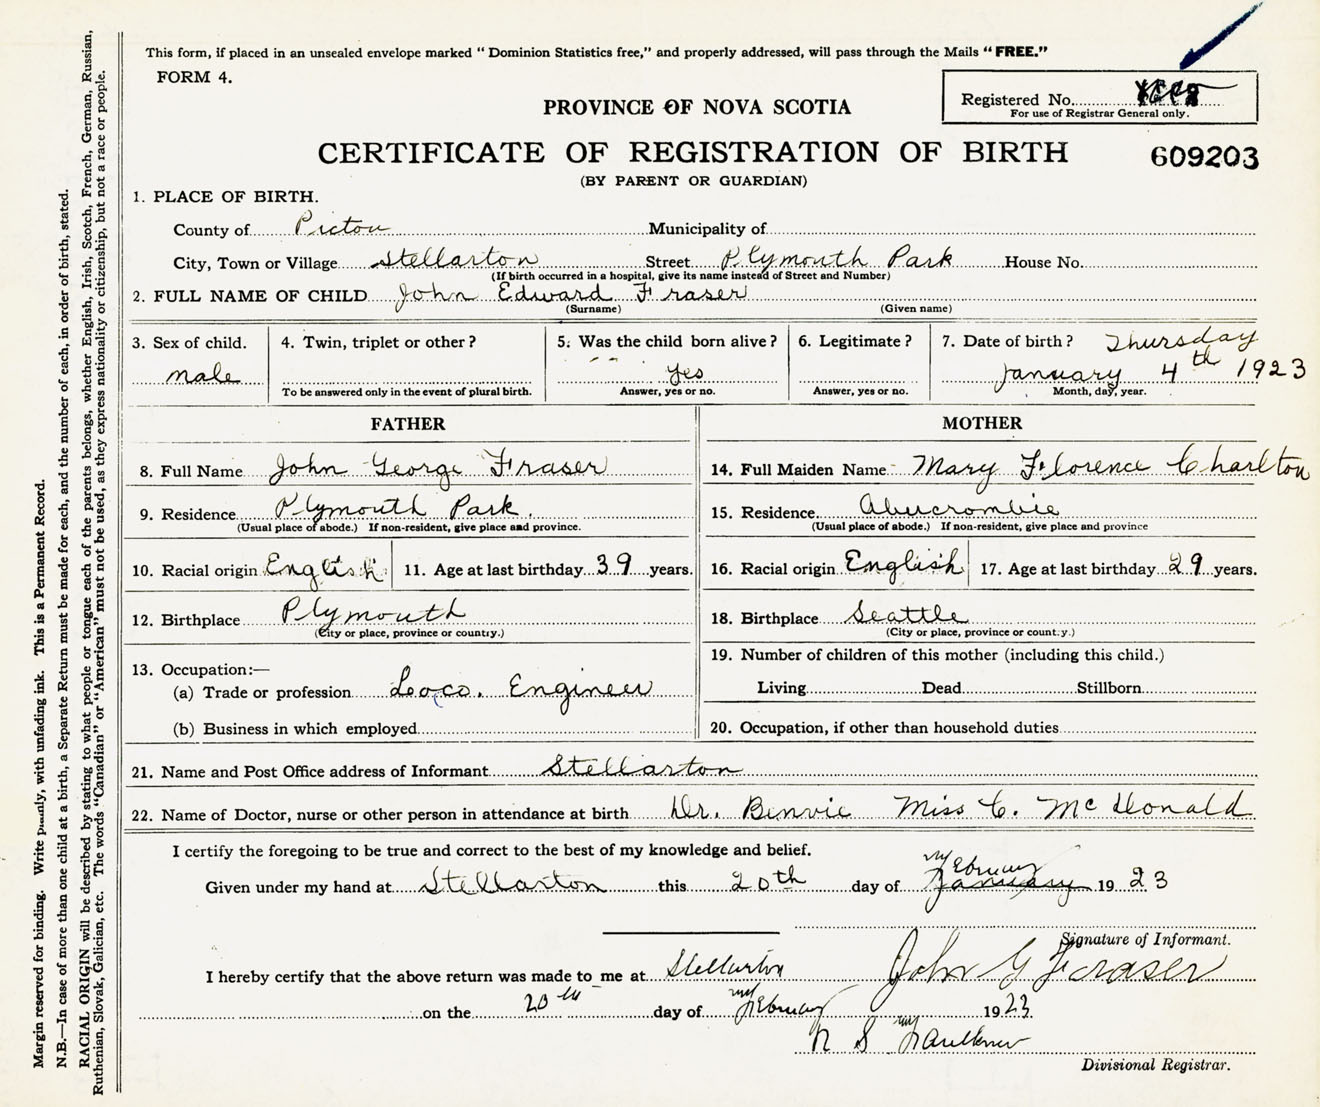 This form, if placed in an unsealed envelope marked “ Dominion Statistics free,” and properly addressed, will pass through the Mails “ FREE.”
FORM 4.
Registered No.
For use of Registrar General only.
PROVINCE OF NOVA SCOTIA
CERTIFICATE OF REGISTRATION OF BIRTH 609203
(BY PARENT OR GUARDIAN)
1. PLACE OF BIRTH.
County of Pictou Municipality of
City, Town or Village Stellarton Street Plymouth Park House No.
(If birth occurred in a hospital, give its name instead of Street and Number)
2. FULL NAME OF CHILD John Edward Fraser
(Surname) (Given name)
3. Sex of child. male
4. Twin, triplet or other ?
To be answered only in the event of plural birth.
5. Was the child born alive ? yes
Answer, yes or no.
6. Legitimate ?
Answer, yes or no.
7. Date of birth ? Thursday
January 4th 1923
Month, day, year.
FATHER
8. Full Name John George Fraser
9. Residence Plymouth Park.
(Usual place of abode.) If non-resident, give place and province.
10. Racial origin English 11. Age at last birthday 39 years.
12. Birthplace Plymouth
(City or place, province or country.)
13. Occupation:—
(a) Trade or profession Loco. Engineer
(b) Business in which employed
MOTHER
14. Full Maiden Name Mary Florence Charlton
15. Residence Abucrombie
(Usual place of abode.) If non-resident, give place and province
16. Racial origin English 17. Age at last birthday 29 years.
18. Birthplace Seattle
(City or place, province or country.)
19. Number of children of this mother (including this child.)
Living Dead Stillborn
20. Occupation, if other than household duties
21. Name and Post Office address of Informant Stellarton
22. Name of Doctor, nurse or other person in attendance at birth Dr. Benvie Miss C. McDonald
I certify the foregoing to be true and correct to the best of my knowledge and belief.
Given under my hand at Stellarton this 20th day of January February 1923
Signature of Informant.
I hereby certify that the above return was made to me at Stellarton John G Fraser
on the 20th day of February 1923
N S Faulkner
Divisional Registrar.
Margin reserved for binding. Write plainly, with unfading ink. This is a Permanent Record.
N.B.—In case of more than one child at a birth, a Separate Return must be made for each, and the number of each, in order of birth, stated.
RACIAL ORIGIN will be described by stating to what people or tongue each of the parents belongs, whether English, Irish, Scotch, French, German, Russian,
Ruthenian, Slovak, Galician, etc. The words “Canadian” or “American” must not be used, as they express nationality or citizenship, but not a race or people.